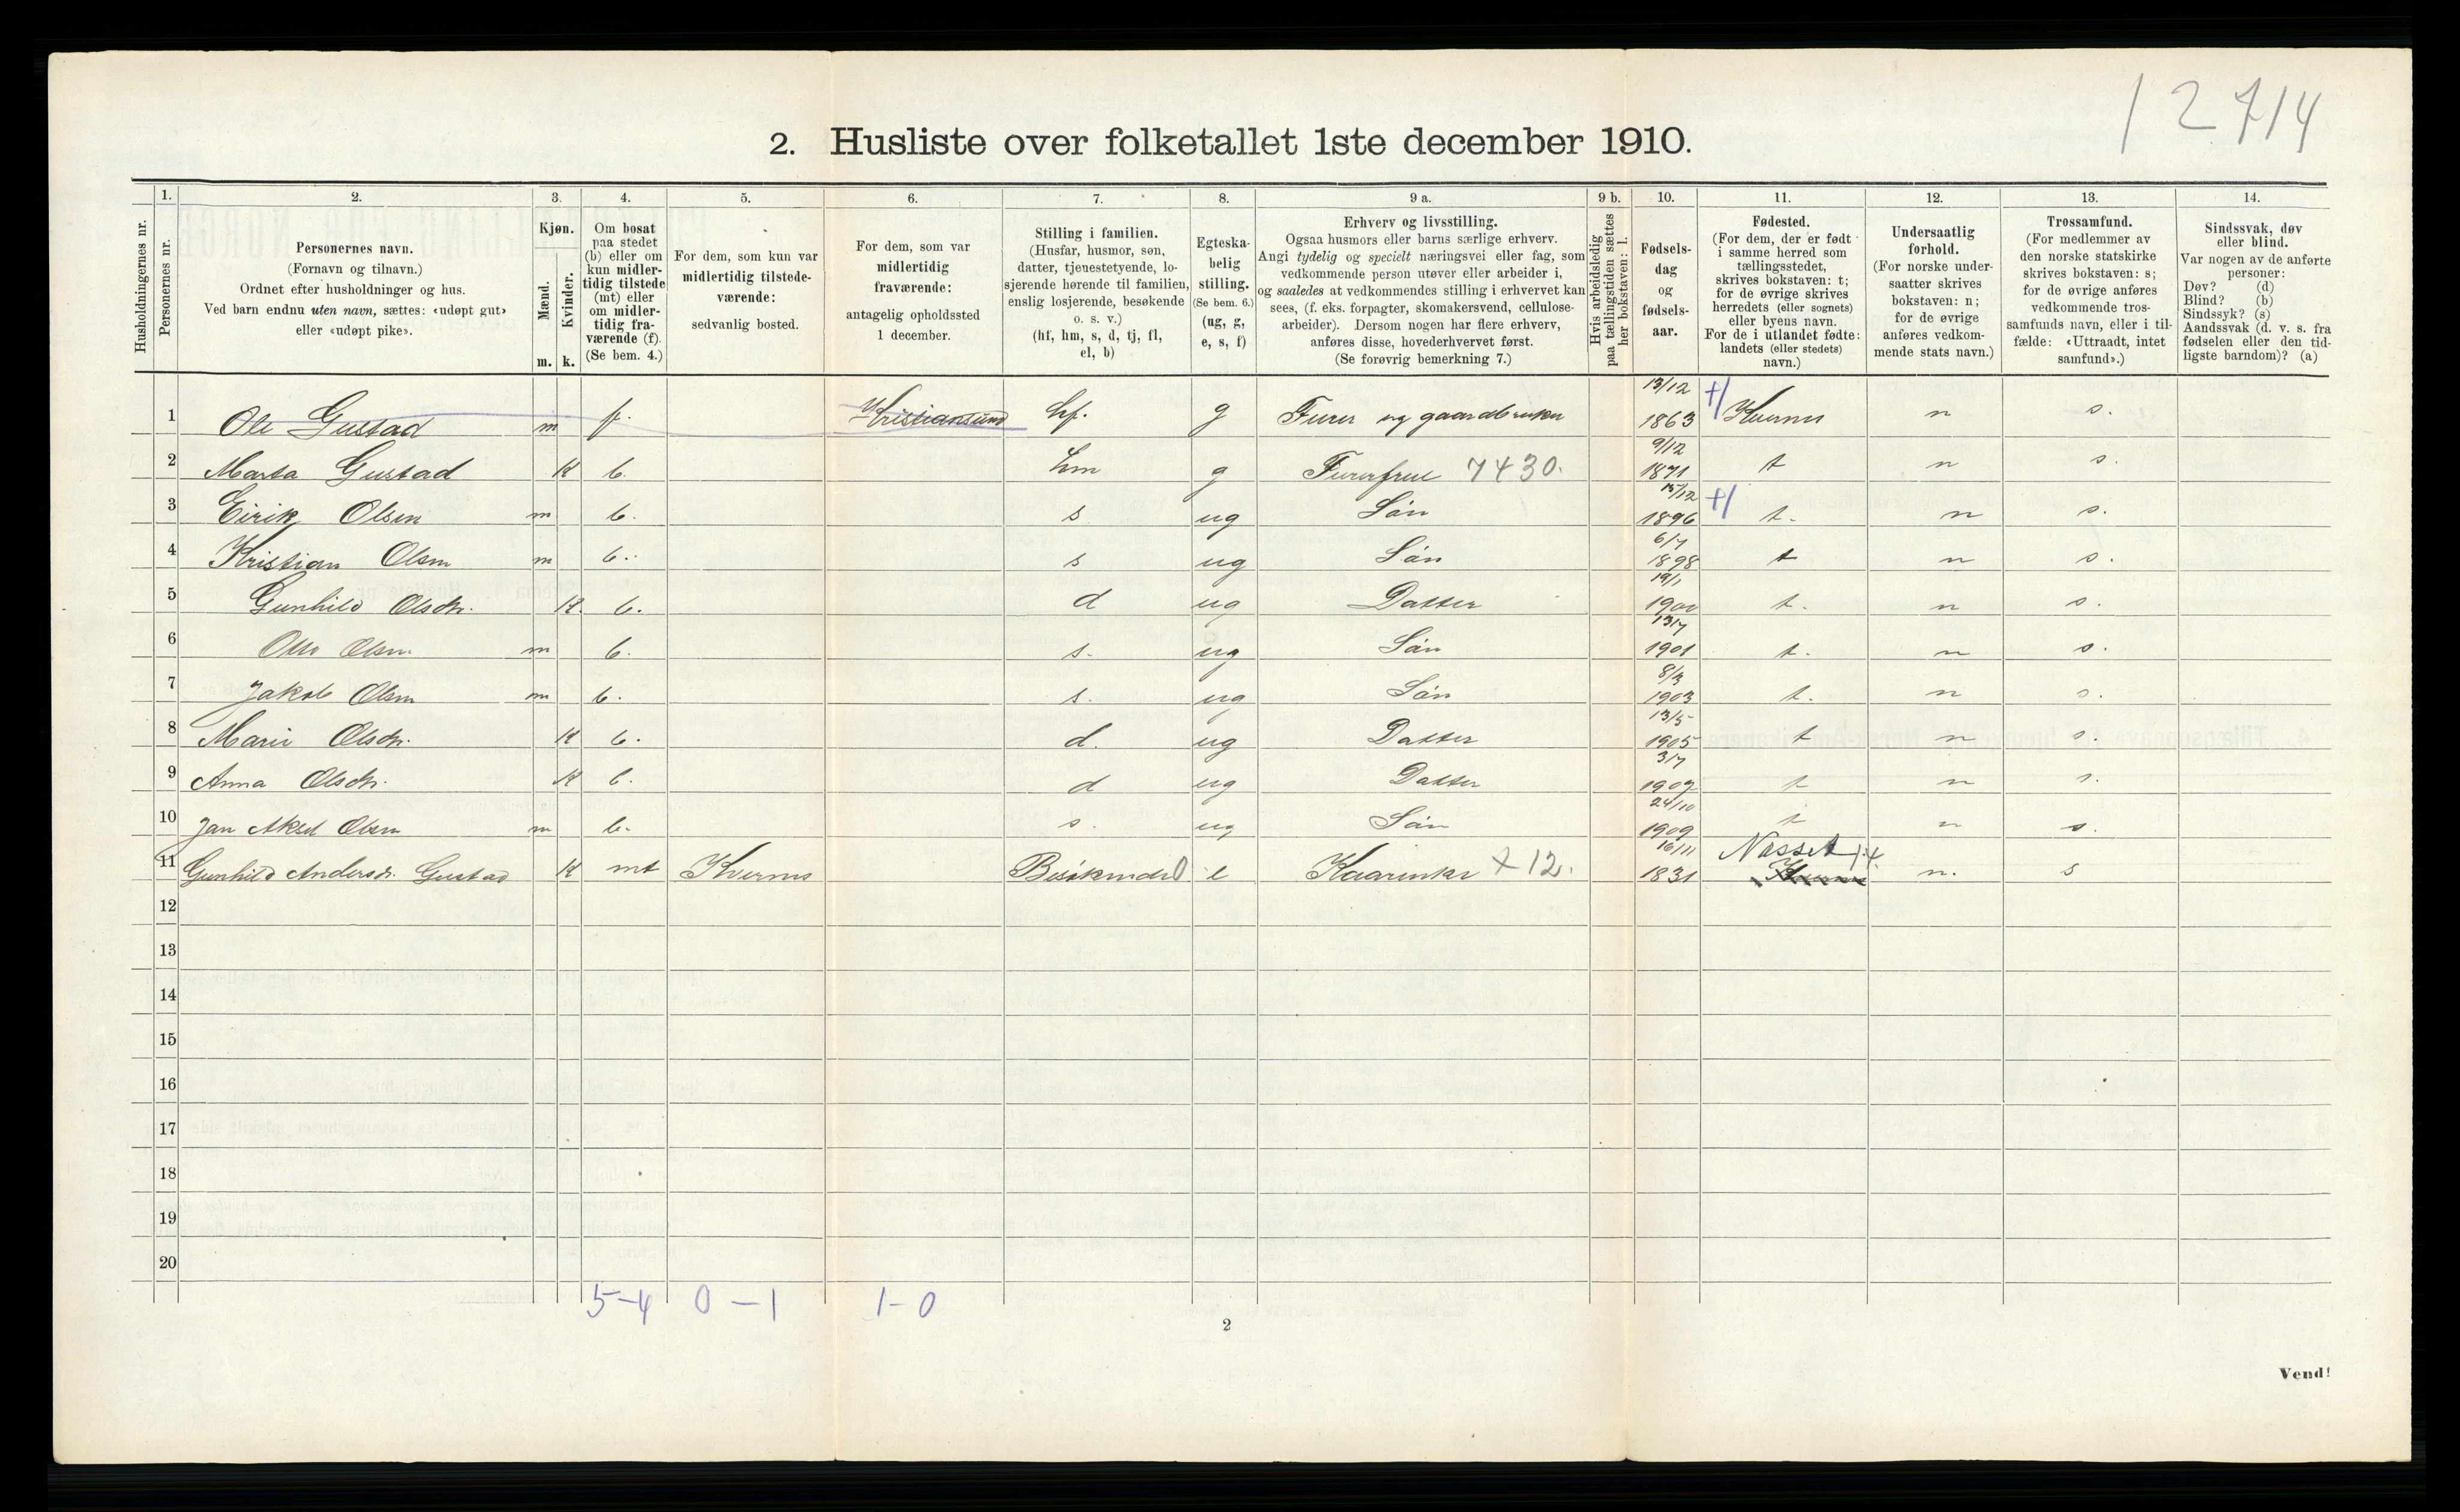 12714
2. Husliste over folketallet 1ste december 1910.
Husholdningernes nr.
1. Personernes nr.
2. Personernes navn.
(Fornavn og tilnavn.)
Ordnet efter husholdninger og hus.
Ved barn endnu uten navn, sættes: «udøpt gut»
eller «udøpt pike».
3. Kjøn.
Mænd. Kvinder.
m. k.
4. Om bosat
paa stedet
(b) eller om
kun midler-
tidig tilstede
(mt) eller
om midler-
tidig fra-
værende (f).
(Se bem. 4.)
5. For dem, som kun var
midlertidig tilstede-
værende:
sedvanlig bosted.
6. For dem, som var
midlertidig
fraværende:
antagelig opholdssted
1 december.
7. Stilling i familien.
(Husfar, husmor, søn,
datter, tjenestetyende, lo-
sjerende hørende til familien,
enslig losjerende, besøkende
o. s. v.)
(hf, hm, s, d, tj, fl,
el, b)
8. Egteska-
belig
stilling.
(Se bem. 6.)
(ug, g,
e, s, f)
9 a. Erhverv og livsstilling.
Ogsaa husmors eller barns særlige erhverv.
Angi tydelig og specielt næringsvei eller fag, som
vedkommende person utøver eller arbeider i,
og saaledes at vedkommendes stilling i erhvervet kan
sees, (f. eks. forpagter, skomakersvend, cellulose-
arbeider). Dersom nogen har flere erhverv,
anføres disse, hovederhvervet først.
(Se forøvrig bemerkning 7.)
9 b. Hvis arbeidsledig
paa tællingstiden sættes
her bokstaven: l.
10. Fødsels-
dag
og
fødsels-
aar.
11. Fødested.
(For dem, der er født
i samme herred som
tællingsstedet,
skrives bokstaven: t;
for de øvrige skrives
herredets (eller sognets)
eller byens navn.
For de i utlandet fødte:
landets (eller stedets)
navn.)
12. Undersaatlig
forhold.
(For norske under-
saatter skrives
bokstaven: n;
for de øvrige
anføres vedkom-
mende stats navn.)
13. Trossamfund.
(For medlemmer av
den norske statskirke
skrives bokstaven: s;
for de øvrige anføres
vedkommende tros-
samfunds navn, eller i til-
fælde: «Uttraadt, intet
samfund».)
14. Sindssvak, døv
eller blind.
Var nogen av de anførte
personer:
Døv? (d)
Blind? (b)
Sindssyk? (s)
Aandssvak (d. v. s. fra
fødselen eller den tid-
ligste barndom)? (a)
1 Ole Gustad m f. Kristiansund hf. g Furer og gaardbruker 13/12 1863 Kvernes n s.
2 Marta Gustad K b. hm g Furerfrue 7430. 9/12 1871 t n s.
3 Eirik Olsen m b. s ug Sön 15/12 1896 t. n s.
4 Kristian Olsen m b. s ug Sön 6/7 1898 t n s.
5 Gunhild Olsdtr. K. b. d ug Datter 19/1 1900 t. n s.
6 Otto Olsen m b. s. ug Sön 13/7 1901 t. n s.
7 Jakob Olsen m b. s. ug Sön 8/3 1903 t. n s.
8 Marie Olsdtr. K b. d. ug Datter 13/5 1905 t n s.
9 Anna Olsdtr. K b. d ug Datter 3/7 1907 t n s.
10 Jan Aksel Olsen m b. s. ug Sön 24/10 1909 t n s.
11 Gunhild Andersdr. Gustad K mt Kvernes e Kaarenke + 12. 16/11 1831 Nesset n. s
12
13
14
15
16
17
18
19
20
5-4 0-1 1-0
2
Vend!